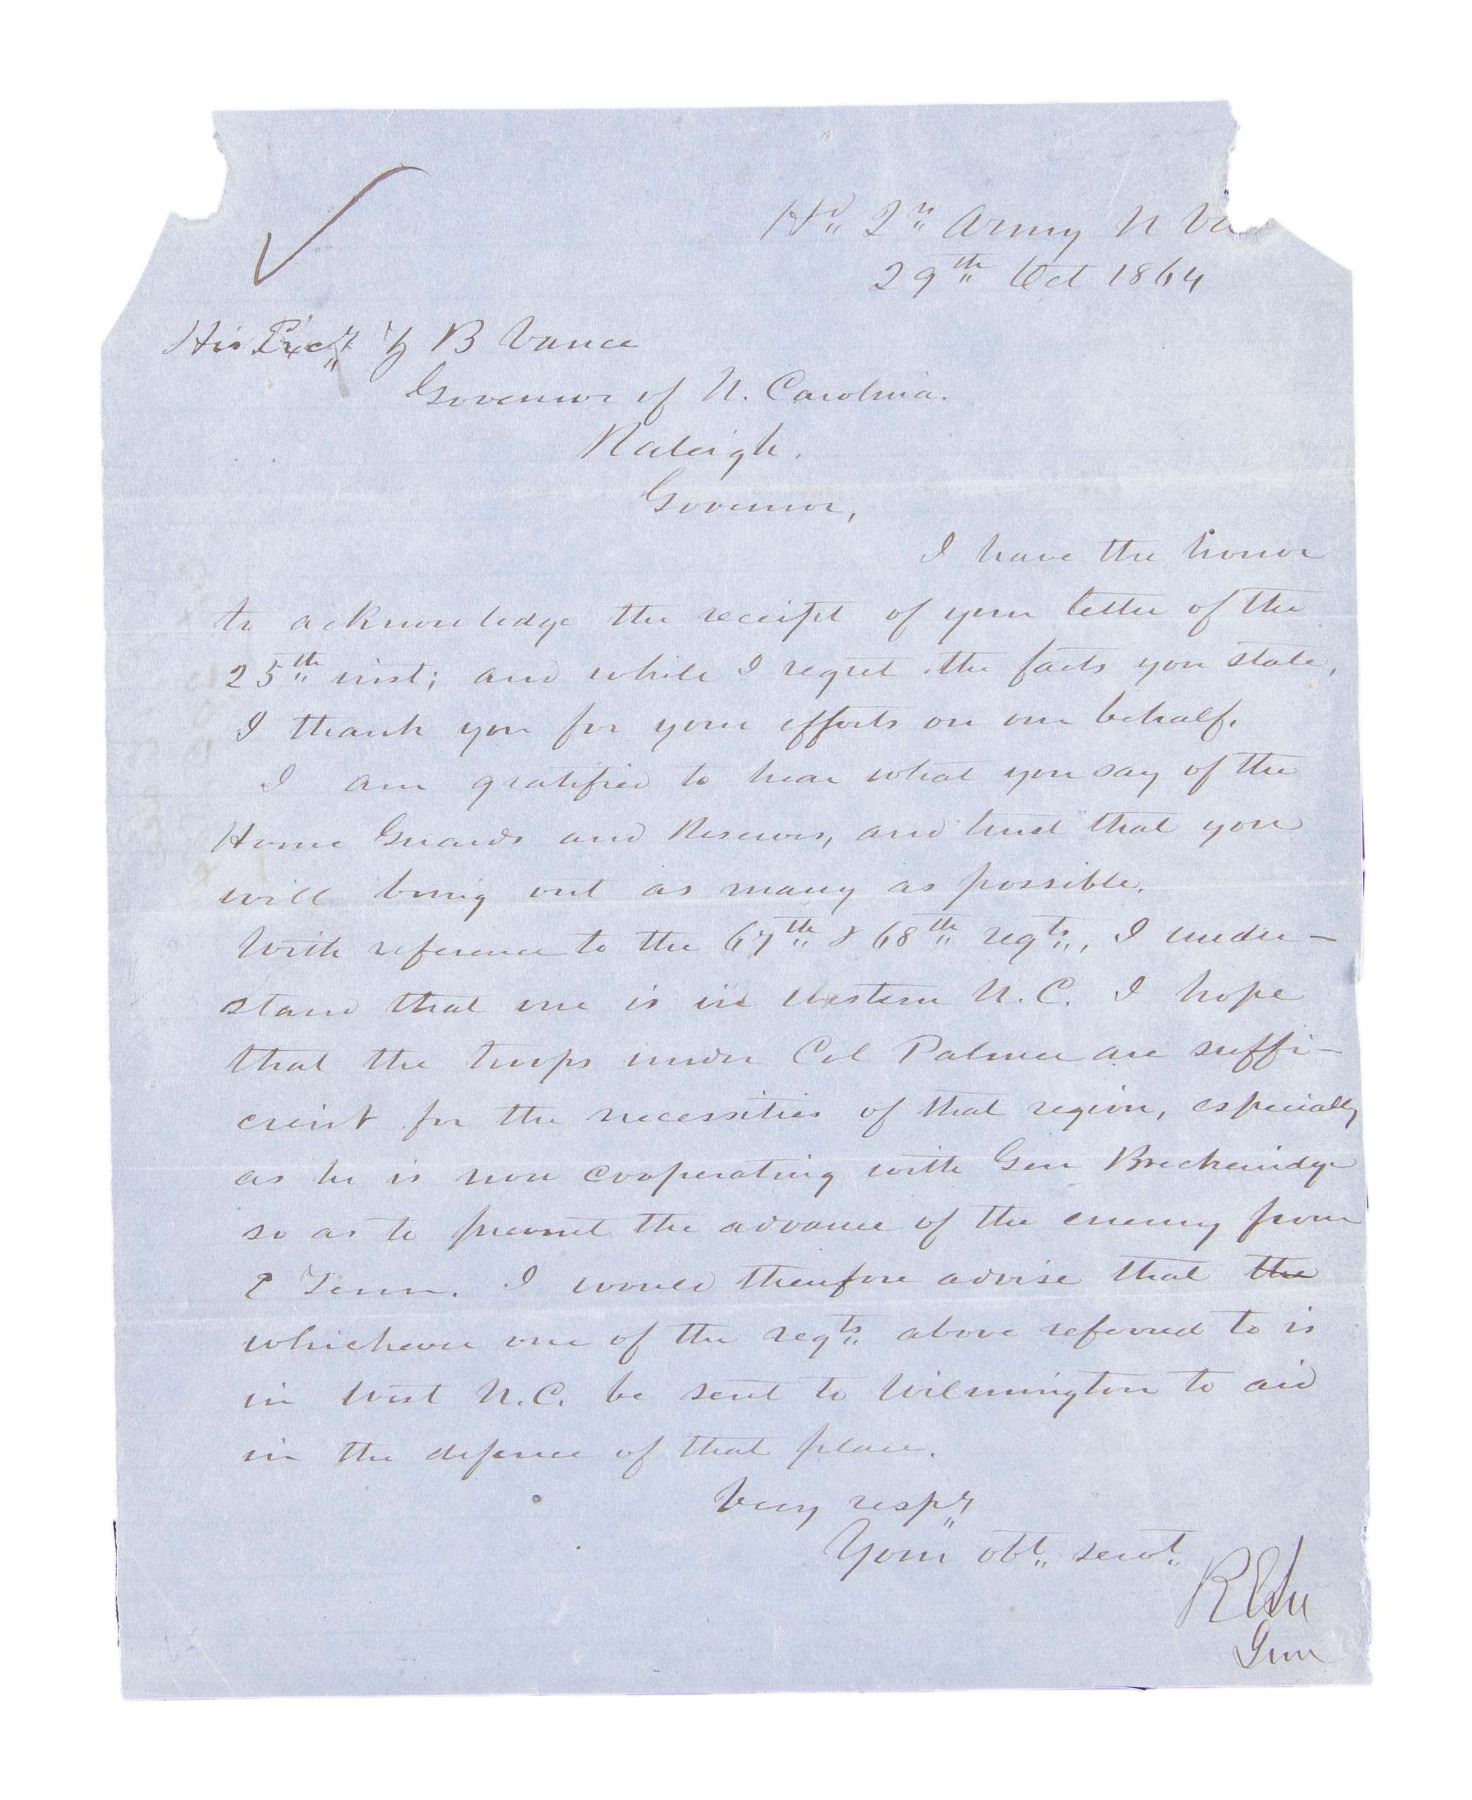 Hd Qrs Army N Va
29th Oct 1864
His Excy Z B Vance
Governor of N. Carolina.
Raleigh.
Governor,
I have the honor
to acknowledge the receipt of your letter of the
25th inst; and while I regret the facts you state,
I thank you for your efforts on our behalf.
I am gratified to hear what you say of the
Home Guards and Reserves, and trust that you
will bring out as many as possible.
With reference to the 67th & 68th regts, I under-
stand that one is in Western N.C. I hope
that the troops under Col Palmer are suffi-
cient for the necessities of that region, especially
as he is now cooperating with Gen Breckenridge
so as to prevent the advance of the enemy from
E Tenn. I would therefore advise that the
whichever one of the regts above referred to is
in West N.C. be sent to Wilmington to aid
in the defence of that place.
Very respy
Your obt servt
R E Lee
Genl